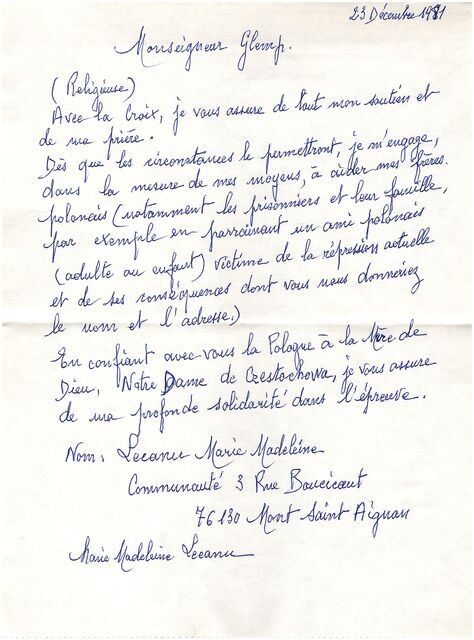 23 Décembre 1981
Monseigneur Glemp.
(Religieuse)
Avec la Croix, je vous assure de tout mon soutien et
de ma prière.
Dès que les circonstances le permettront, je m'engage,
dans la mesure de mes moyens, à aider mes frères
polonais (notamment les prisonniers et leur famille,
par exemple en parrainant un ami polonais
(adulte ou enfant) victime de la répression actuelle
et de ses conséquences dont vous nous donneriez
le nom et l'adresse.)
En confiant avec vous la Pologne à la Mère de
Dieu, Notre Dame de Czestochowa, je vous assure
de ma profonde solidarité dans l'épreuve.
Nom: Lecanu Marie Madeleine
Communauté 3 Rue Boucicaut
76130 Mont Saint Aignan
Marie Madeleine Lecanu